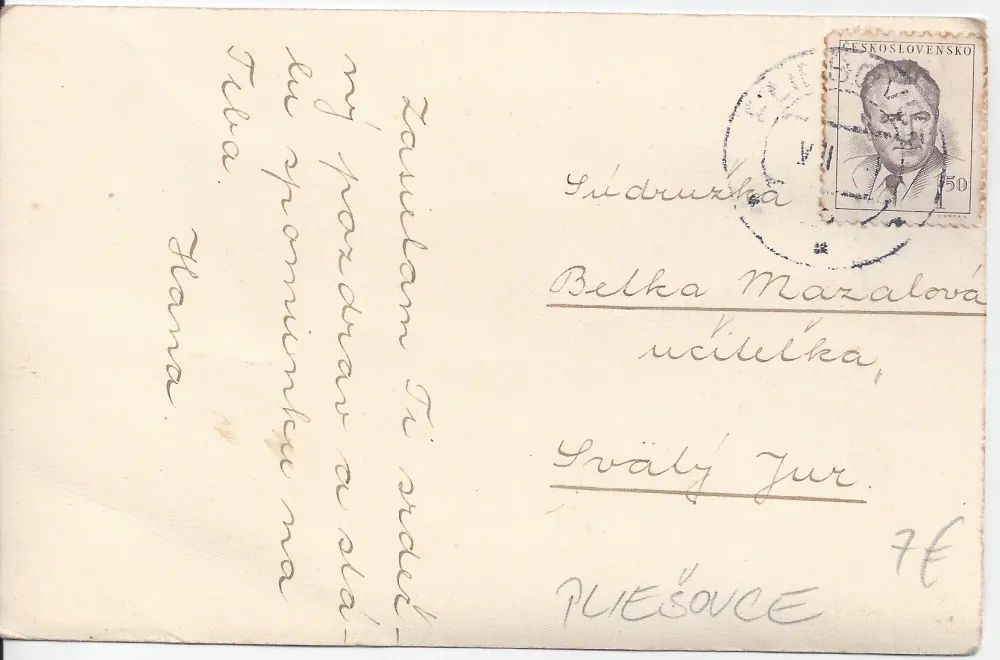 Zasielam Ti srdeč-
ný pozdrav a stá-
lu spomienku na
Teba.
Hana.
ČESKOSLOVENSKO
1.50
Súdružka
Belka Mazalová
učiteľka,
Svätý Jur.
7€
PLIEŠOVCE